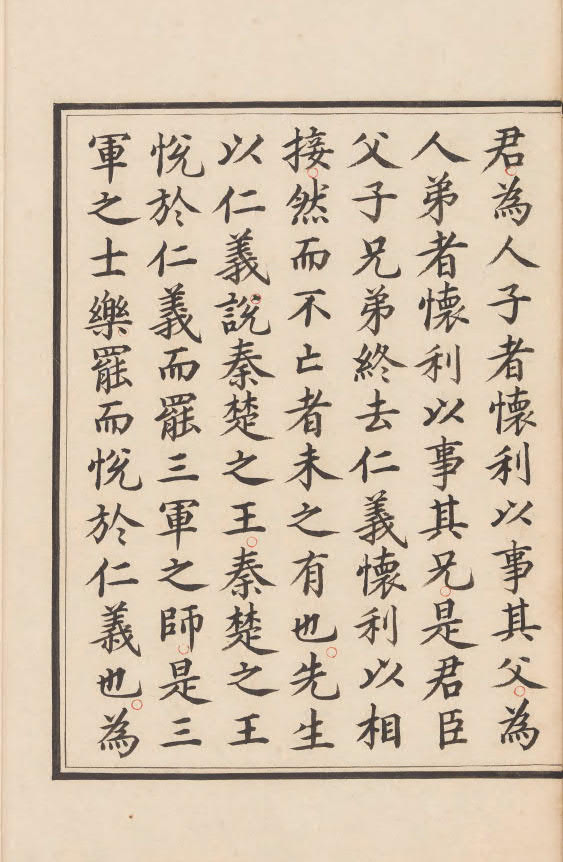 君為人子者懷利以事其父為
人弟者懷利以事其兄是君臣
父子兄弟終去仁義懷利以相
接然而不亡者未之有也先生
以仁義說秦楚之王秦楚之王
悅於仁義而罷三軍之師是三
軍之士樂罷而悅於仁義也為